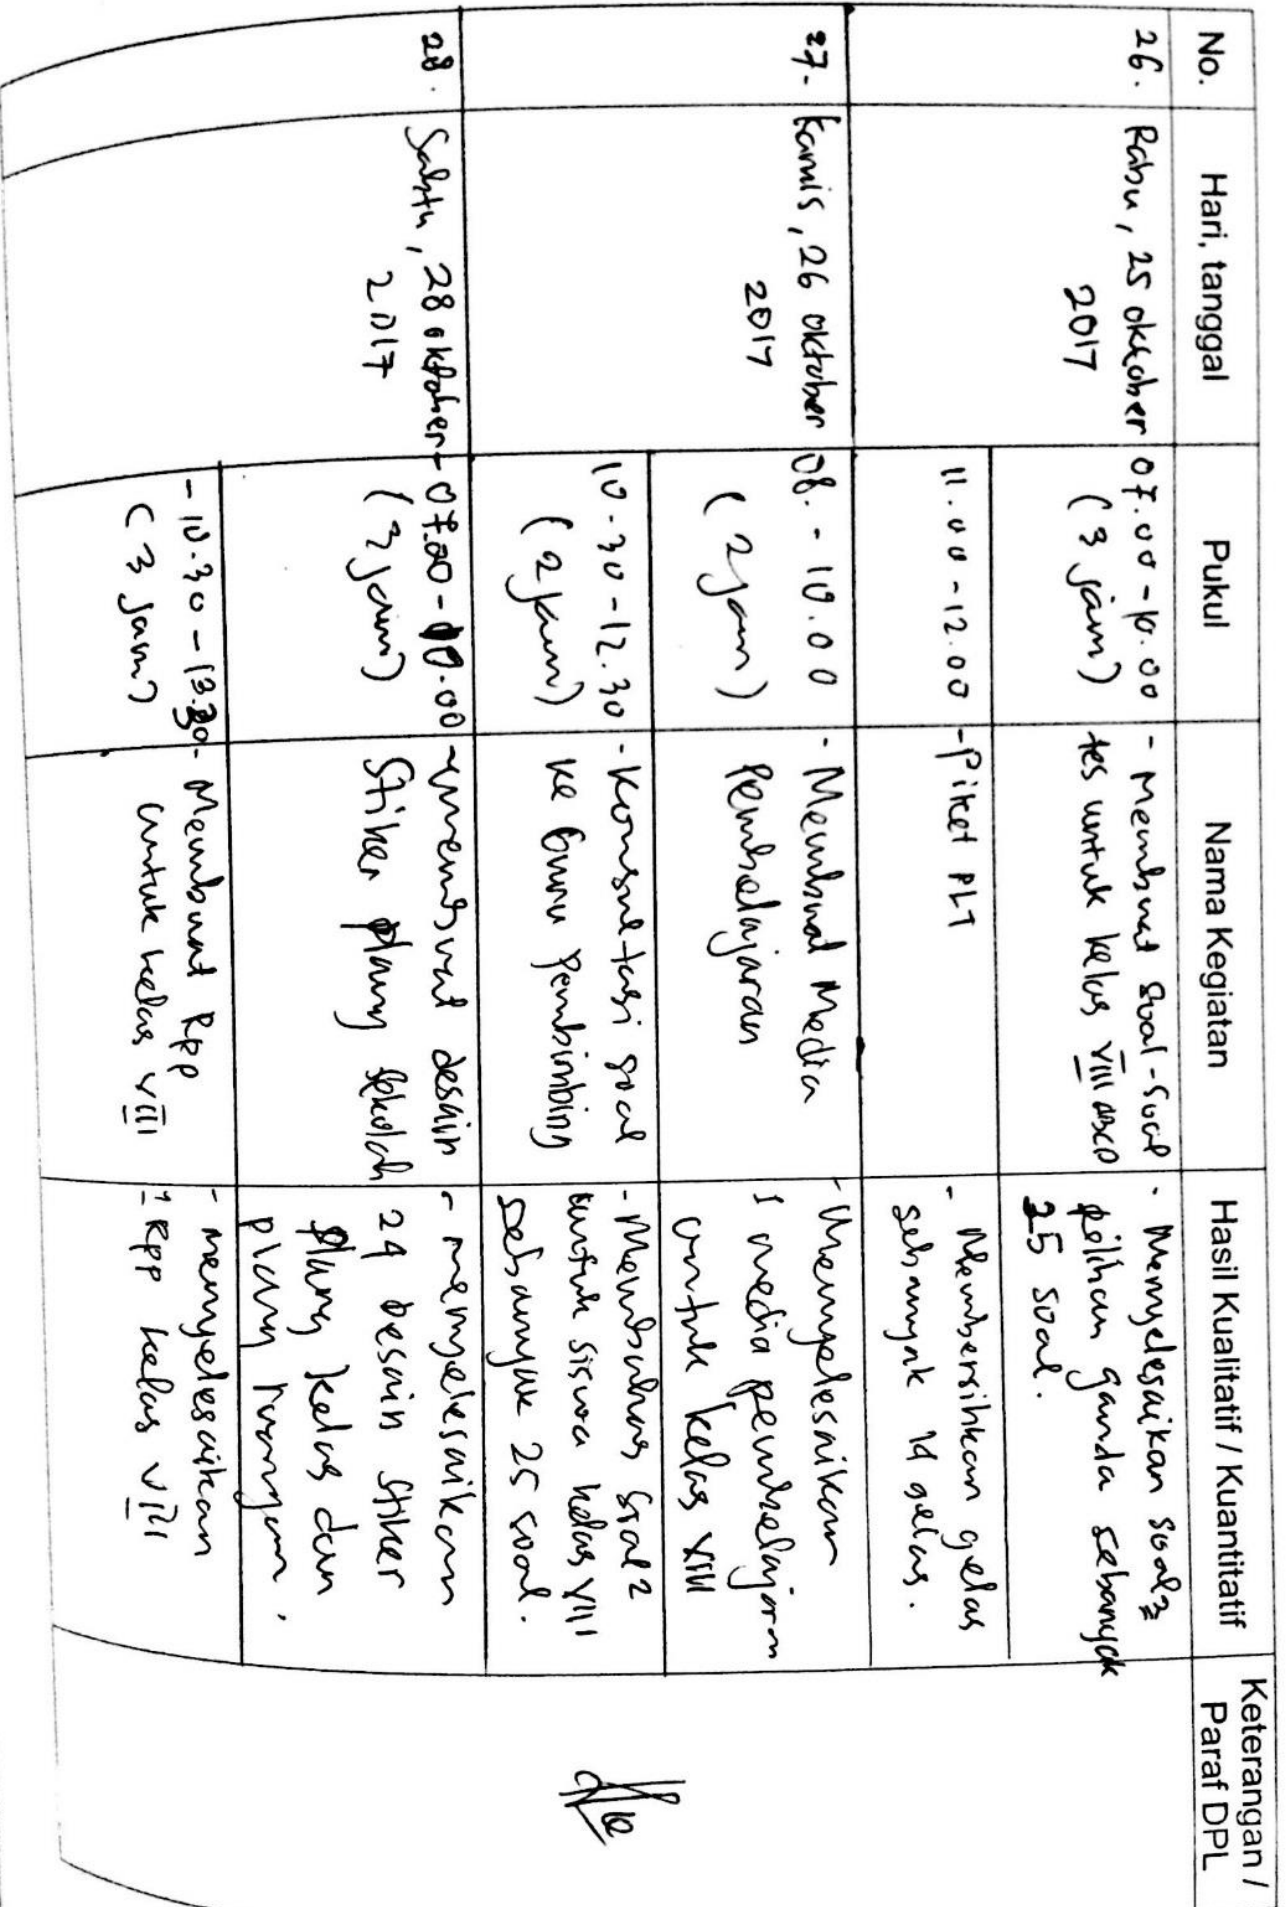 No.
Hari, tanggal
Pukul
Nama Kegiatan
Hasil Kualitatif / Kuantitatif
Keterangan /
Paraf DPL
26.
Rabu, 25 oktober
2017
07.00-10.00
(3 jam)
- Membuat soal-soal
tes untuk kelas VIII ABCD
- Menyelesaikan soal2
pilihan ganda sebanyak
25 soal.
11.00-12.00
- Piket PLT
- Membersihkan gelas
sebanyak 14 gelas.
27.
Kamis, 26 oktober
2017
08.-10.00
(2 jam)
- Membuat Media
Pembelajaran
- Menyelesaikan
1 media pembelajaran
untuk kelas VIII
10.30-12.30
(2 jam)
- Konsultasi soal
ke Guru Pembimbing
- Membahas soal2
untuk siswa kelas VIII
sebanyak 25 soal.
28.
Sabtu, 28 oktober
2017
- 07.00-10.00
(3 jam)
- membuat desain
Stiker plang sekolah
- menyelesaikan
24 desain stiker
plang kelas dan
plang ruangan.
- 10.30-13.30
(3 jam)
- Membuat Rpp
untuk kelas VIII
- menyelesaikan
1 Rpp kelas VIII